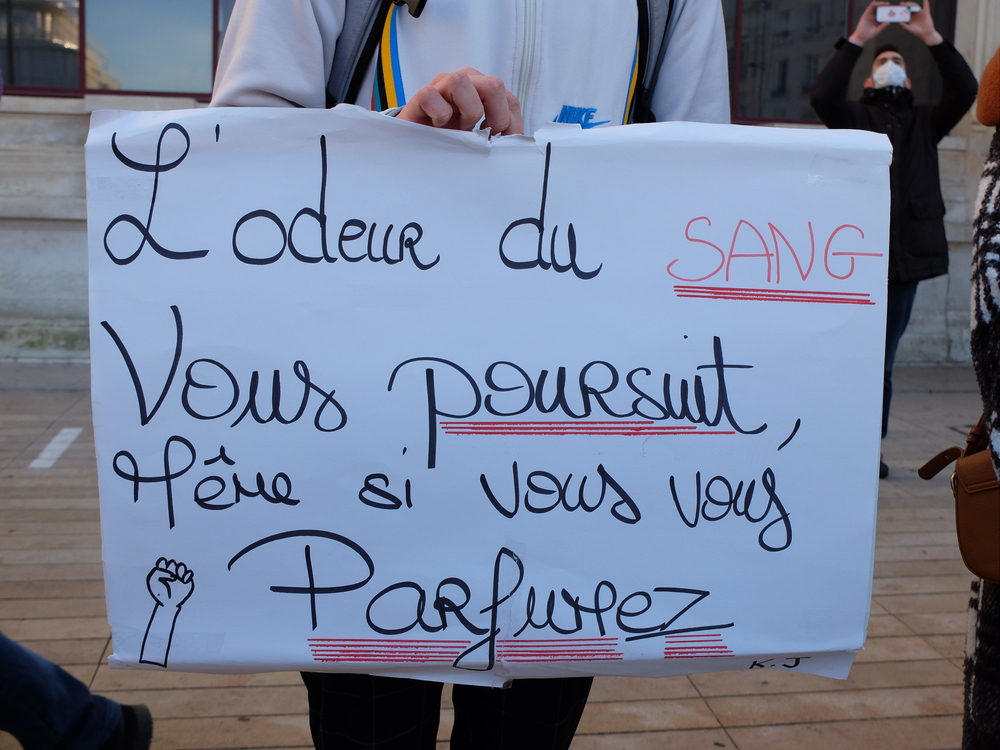 NIKE
L'odeur du SANG
Vous poursuit,
Même si vous vous
Parfumez
K.J